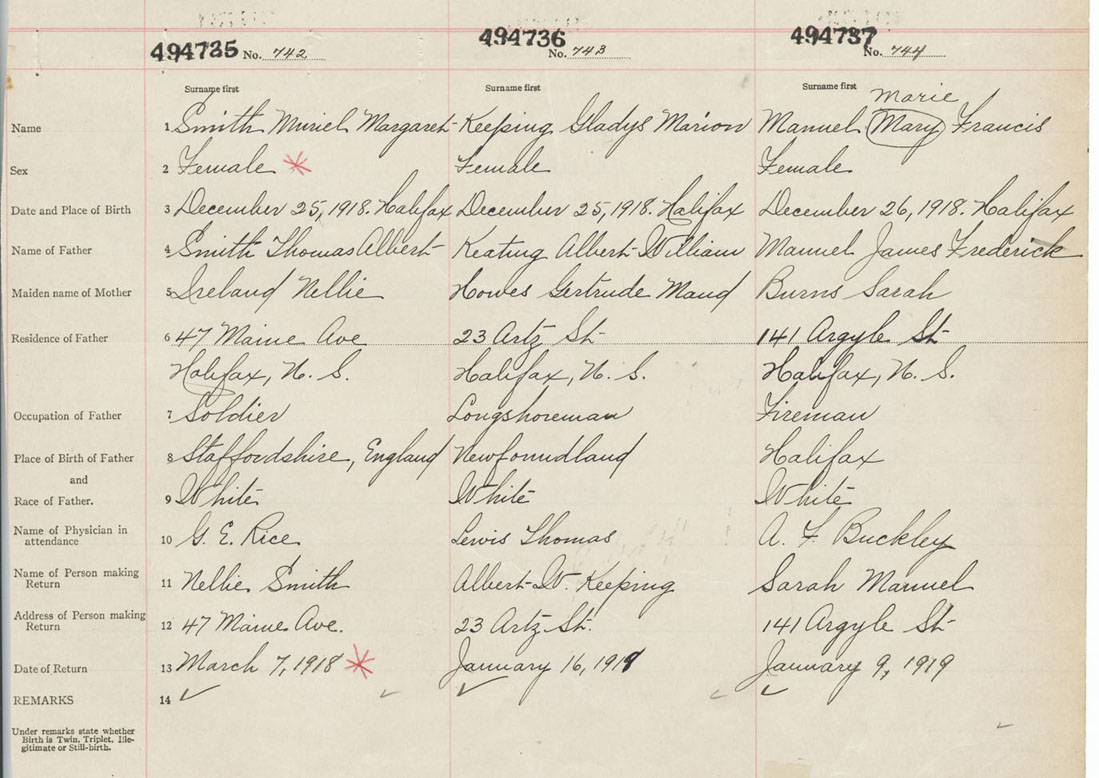 494735 No. 742 494736 No. 743 494737 No. 744
Surname first Surname first Surname first
Marie
Name 1 Smith Muriel Margaret Keeping Gladys Marion Manuel Mary Francis
Sex 2 Female Female Female
Date and Place of Birth 3 December 25, 1918. Halifax December 25, 1918. Halifax December 26, 1918. Halifax
Name of Father 4 Smith Thomas Albert Keating Albert William Manuel James Frederick
Maiden name of Mother 5 Ireland Nellie Howes Gertrude Maud Burns Sarah
Residence of Father 6 47 Maine Ave 23 Artz St. 141 Argyle St
Halifax, N. S. Halifax, N. S. Halifax, N. S.
Occupation of Father 7 Soldier Longshoreman Fireman
Place of Birth of Father 8 Staffordshire, England Newfoundland Halifax
and
Race of Father. 9 White White White
Name of Physician in
attendance 10 G. E. Rice Lewis Thomas A. F. Buckley
Name of Person making
Return 11 Nellie Smith Albert W. Keeping Sarah Manuel
Address of Person making
Return 12 47 Maine Ave. 23 Artz St. 141 Argyle St
Date of Return 13 March 7, 1918 January 16, 1919 January 9, 1919
REMARKS 14
Under remarks state whether
Birth is Twin, Triplet, Ille-
gitimate or Still-birth.